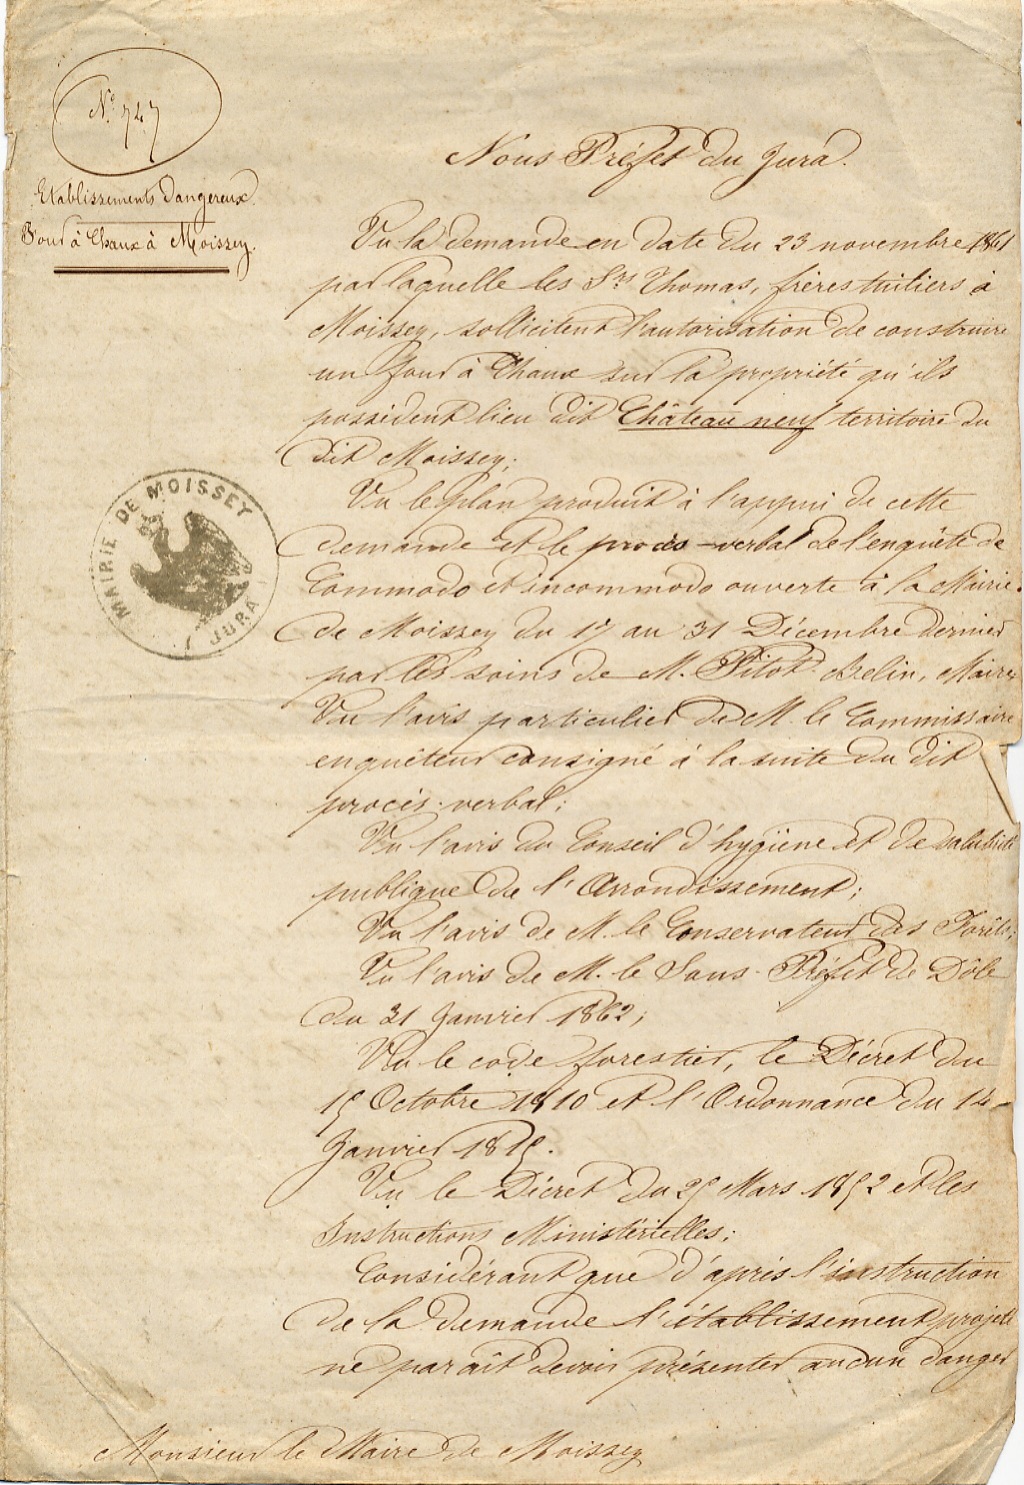 N° 747
Etablissements dangereux.
Four à Chaux à Moissey.
Nous Préfet du Jura.
Vu la demande en date du 23 novembre 1861
par laquelle les Srs Thomas, frères tuiliers à
Moissey, sollicitent l'autorisation de construire
un four à Chaux sur la propriété qu'ils
possèdent lieu dit Château neuf territoire du
dit Moissey;
Vu le plan produit à l'appui de cette
demande et le procès-verbal de l'enquête de
Commodo et incommodo ouverte à la Mairie
de Moissey du 17 au 31 Décembre dernier
par les soins de M. Pitot-Belin, Maire
Vu l'avis particulier de M. le Commissaire
enquêteur consigné à la suite du dit
procès-verbal;
Vu l'avis du Conseil d'hygiène et de salubrité
publique de l'Arrondissement;
Vu l'avis de M. le Conservateur des Forêts;
Vu l'avis de M. le Sous-Préfet de Dôle
du 31 Janvier 1862;
Vu le code forestier, le Décret du
15 Octobre 1810 et l'Ordonnance du 14
Janvier 1815.
Vu le Décret du 25 Mars 1852 et les
Instructions Ministérielles;
Considérant que d'après l'instruction
de la demande l'établissement projeté
ne paraît devoir présenter aucun danger
MAIRIE DE MOISSEY
JURA
Monsieur le Maire de Moissey